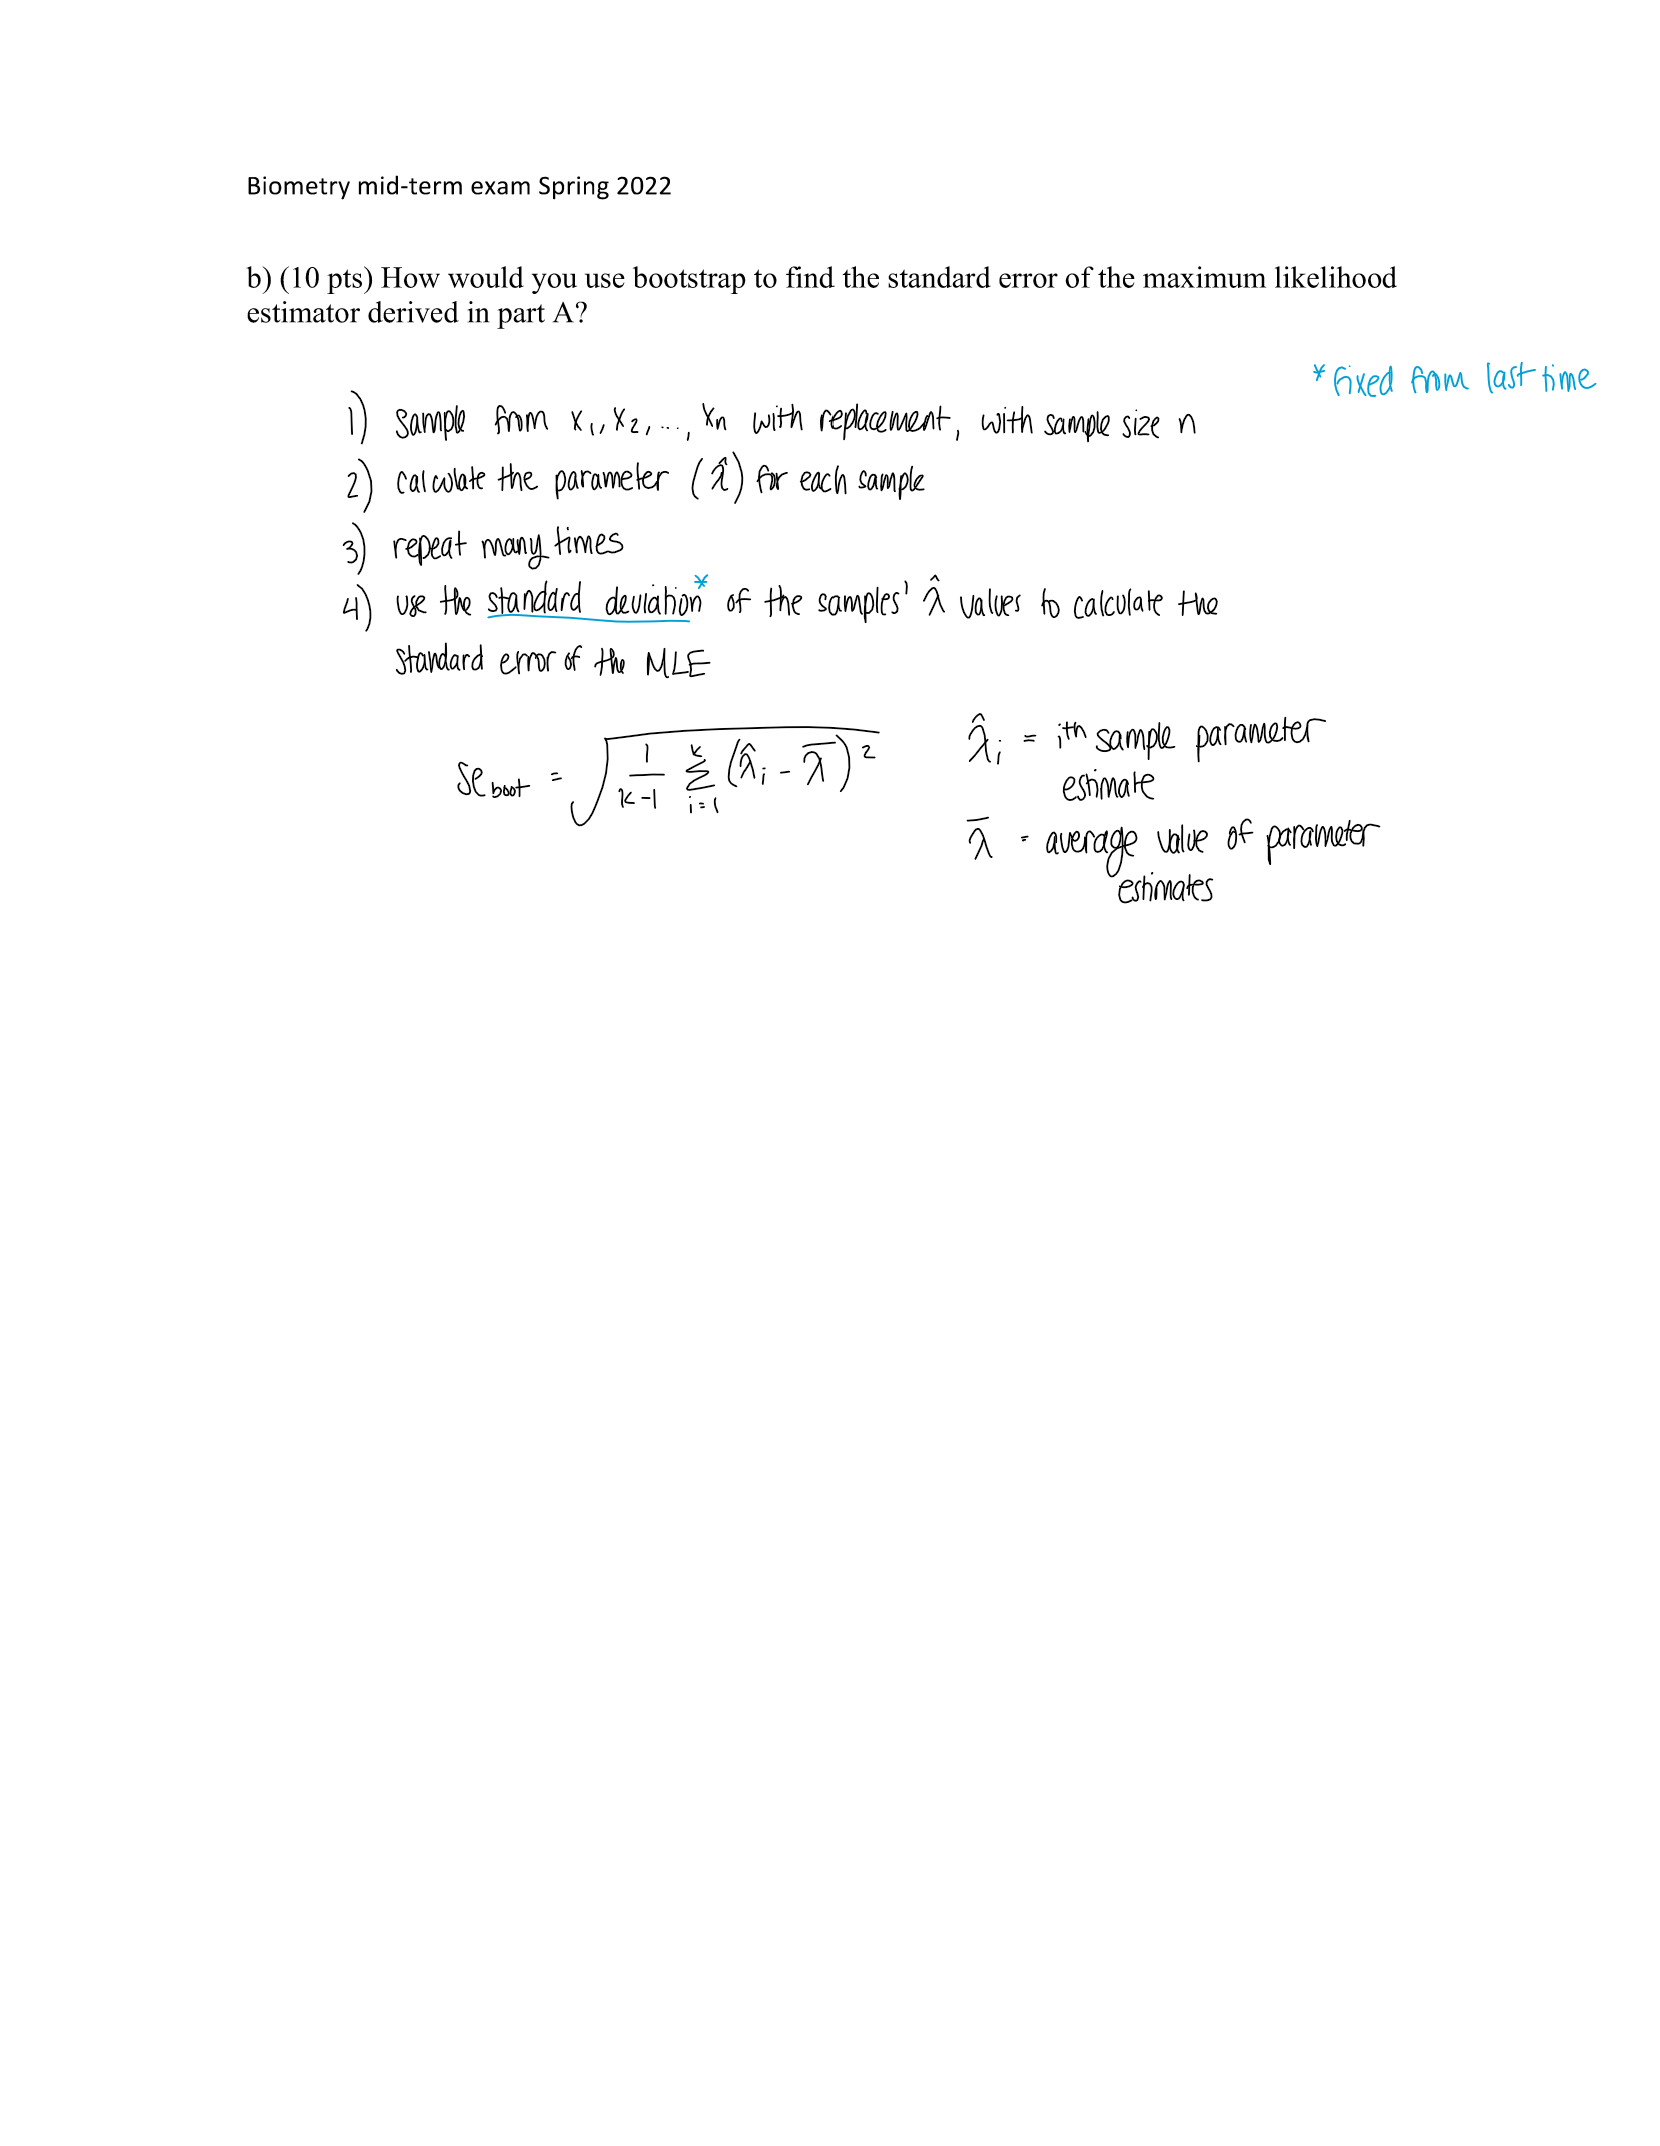 Biometry mid-term exam Spring 2022
b) (10 pts) How would you use bootstrap to find the standard error of the maximum likelihood
estimator derived in part A?
* fixed from last time
1) sample from x₁, x₂, ..., xₙ with replacement, with sample size n
2) calculate the parameter (λ̂) for each sample
3) repeat many times
4) use the standard deviation* of the samples' λ̂ values to calculate the
standard error of the MLE
se_boot = √( 1/(k-1) Σ_{i=1}^{k} (λ̂_i - λ̄)² )
λ̂_i = ith sample parameter
estimate
λ̄ = average value of parameter
estimates